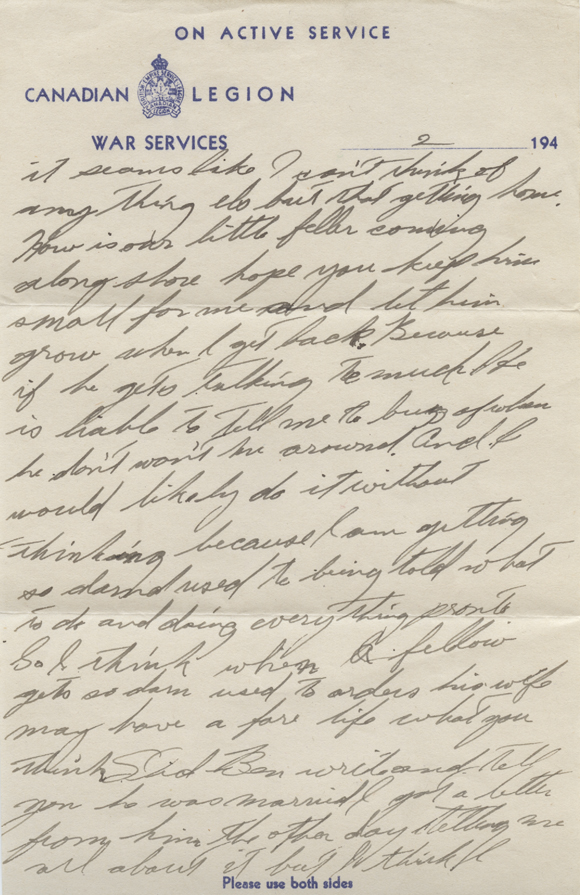 ON ACTIVE SERVICE
CANADIAN LEGION
WAR SERVICES 2 194
it seams like I can't think of
any thing els but that getting home.
How is our little feller coming
along shore hope you keep him
small for me and let him
grow when I get back. Because
if he gets talking to much He
is liable to tell me to bugg of when
he don't won't me around. And I
would likely do it without
thinking because I am getting
so darnd used to being told what
to do and doing everything pronto
So I think when a fellow
gets so darn used to orders his wife
may have a fare life what you
think Did Ben write and tell
you he was married I got a letter
from him the other day telling me
all about it but I think
Please use both sides